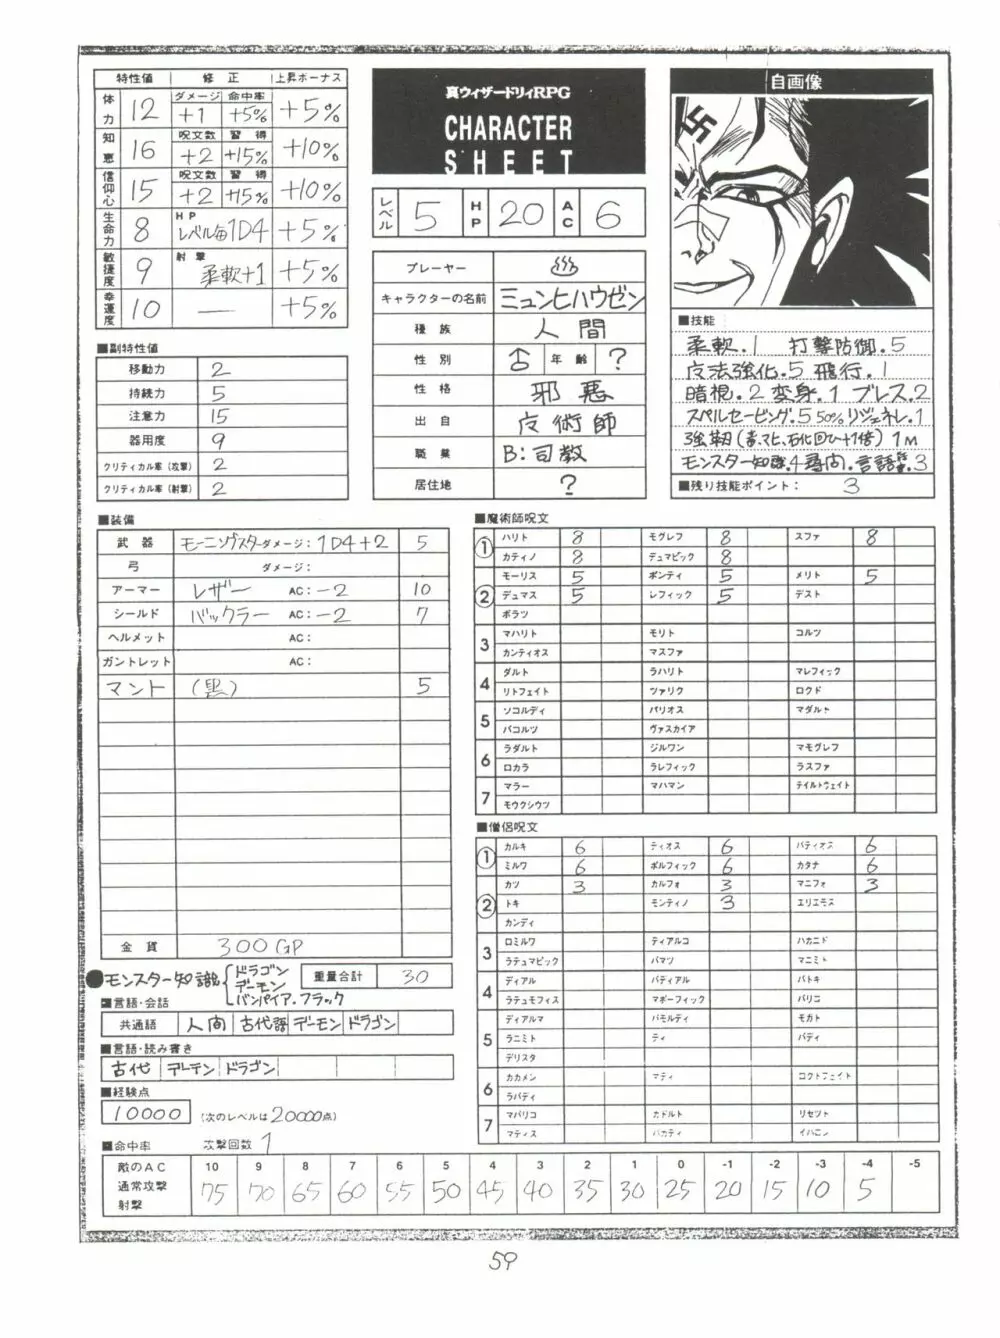 特性値 修正 上昇ボーナス
体力 12 ダメージ +1 命中率 +5% +5%
知恵 16 呪文数 +2 習得 +15% +10%
信仰心 15 呪文数 +2 習得 +15% +10%
生命力 8 HP レベル毎1D4 +5%
敏捷度 9 射撃 柔軟+1 +5%
幸運度 10 — +5%
■副特性値
移動力 2
持続力 5
注意力 15
器用度 9
クリティカル率(攻撃) 2
クリティカル率(射撃) 2
真ウィザードリィRPG
CHARACTER
SHEET
レベル 5 HP 20 AC 6
プレーヤー ♨
キャラクターの名前 ミュンヒハウゼン
種族 人間
性別 ♂ 年齢 ?
性格 邪悪
出自 术術師
職業 B:司教
居住地 ?
自画像
■技能
柔軟.1 打撃防御.5
強化.5 飛行.1
暗視.2 変身.1 ブレス.2
スペルセービング.5 50% リジェネレ.1
強靭(毒、マヒ、石化回ひ+1倍) 1M
モンスター知識.4 尋問.言語.3
■残り技能ポイント: 3
■装備
武器 モーニングスター ダメージ:1D4+2 5
弓 ダメージ:
アーマー レザー AC:-2 10
シールド バックラー AC:-2 7
ヘルメット AC:
ガントレット AC:
マント (黒) 5
金貨 300GP
重量合計 30
●モンスター知識 ドラゴン
デーモン
バンパイア.フラック
■言語・会話
共通語 人間 古代語 デーモン ドラゴン
■言語・読み書き
古代 デーモン ドラゴン
■経験点
10000 (次のレベルは20000点)
■魔術師呪文
① ハリト 8 モグレフ 8 スファ 8
カティノ 8 デュマピック 8
② モーリス 5 ボンティ 5 メリト 5
デュマス 5 レフィック 5 デスト
ボラツ
3 マハリト モリト コルツ
カンティオス マスファ
4 ダルト ラハリト マレフィック
リトフェイト ツァリク ロクド
5 ソコルディ パリオス マダルト
バコルツ ヴァスカイア
6 ラダルト ジルワン マモグレフ
ロカラ ラレフィック ラスファ
7 マラー マハマン テイルトウェイト
モウクシウツ
■僧侶呪文
① カルキ 6 ティオス 6 バティオス 6
ミルワ 6 ポルフィック 6 カタナ 6
② カツ 3 カルフォ 3 マニフォ 3
トキ モンティノ 3 エリエモス
カンディ
3 ロミルワ ティアルコ ハカニド
ラテュマピック バマツ マニミト
4 ディアル バディアル バトキ
ラテュモフィス マポーフィック バリコ
5 ディアルマ バモルディ モガト
ラニミト ティ バディ
デリスタ
6 カカメン マディ ロクトフェイト
ラバディ
7 マバリコ カドルト リセツト
マディス バカディ イハロン
■命中率 攻撃回数 1
敵のAC 10 9 8 7 6 5 4 3 2 1 0 -1 -2 -3 -4 -5
通常攻撃 射撃 75 70 65 60 55 50 45 40 35 30 25 20 15 10 5
59